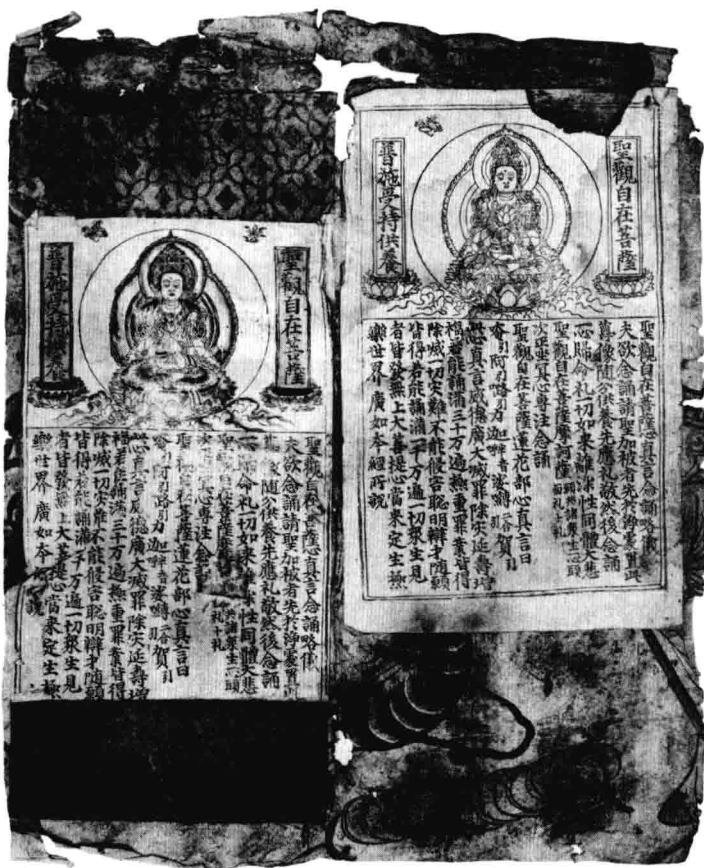 聖觀自在菩薩
普施受持供養
聖觀自在菩薩心真言念誦略儀
夫欲念誦請聖加被者先於淨處置此
尊像隨分供養先應礼敬然後念誦
一心歸命礼一切如來離染性同體大悲
聖觀自在菩薩摩訶薩 願共諸衆生一心頭面礼十礼
次正坐冥心專注念誦
聖觀自在菩薩蓮花部心真言曰
唵引阿引嚕引力迦半音娑嚩二合賀引
此心真言威德廣大滅罪除灾延壽增
福若能誦滿三十万遍極重罪業皆得
除滅一切灾難不能侵害聡明辯才随願
皆得若能誦滿一千万遍一切衆生見
者皆發無上大菩提心當來定生極
樂世界 廣如本經所說
聖觀自在菩薩
普施受持供養
聖觀自在菩薩心真言念誦略儀
夫欲念誦請聖加被者先於淨處置此
像隨分供養先應礼敬然後念誦
歸命礼一切如來離染性同體大悲
聖觀自在菩薩摩 共諸衆生一心頭 礼十礼
次正坐冥心專注念誦
聖觀自在菩薩蓮花部心真言曰
唵引阿引嚕引力迦半音娑嚩二合賀引
此心真言威德廣大滅罪除灾延壽增
福若能誦滿三十万遍極重罪業皆得
除滅一切灾難不能侵害聡明辯才随願
皆得若能誦滿一千万遍一切衆生見
者皆發無上大菩提心當來定生極
樂世界 廣如本 說